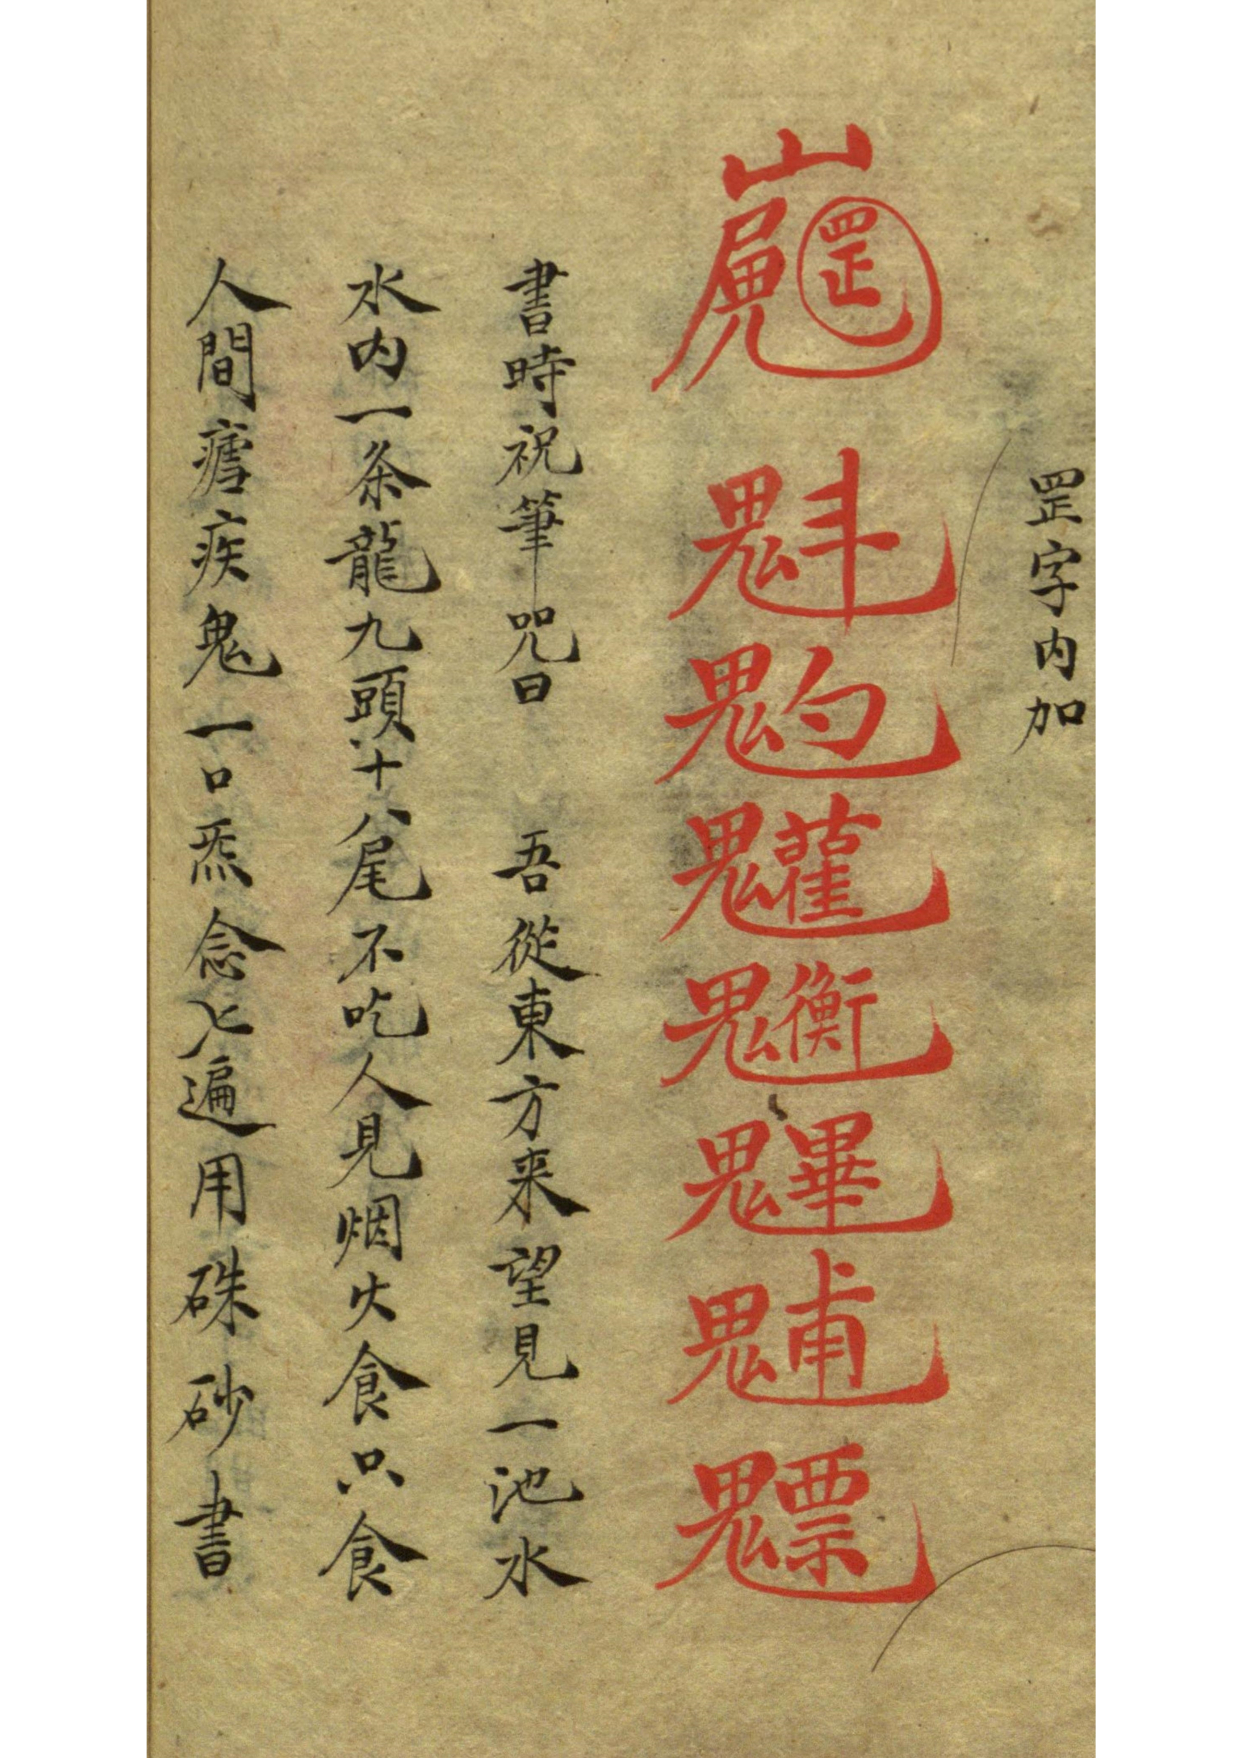 罡字内加
罡 魁 魒
書時祝筆咒曰 吾從東方来望見一池水
水内一条龍九頭十八尾不吃人見烟火食只食
人間瘧疾鬼一口炁念七遍用硃砂書